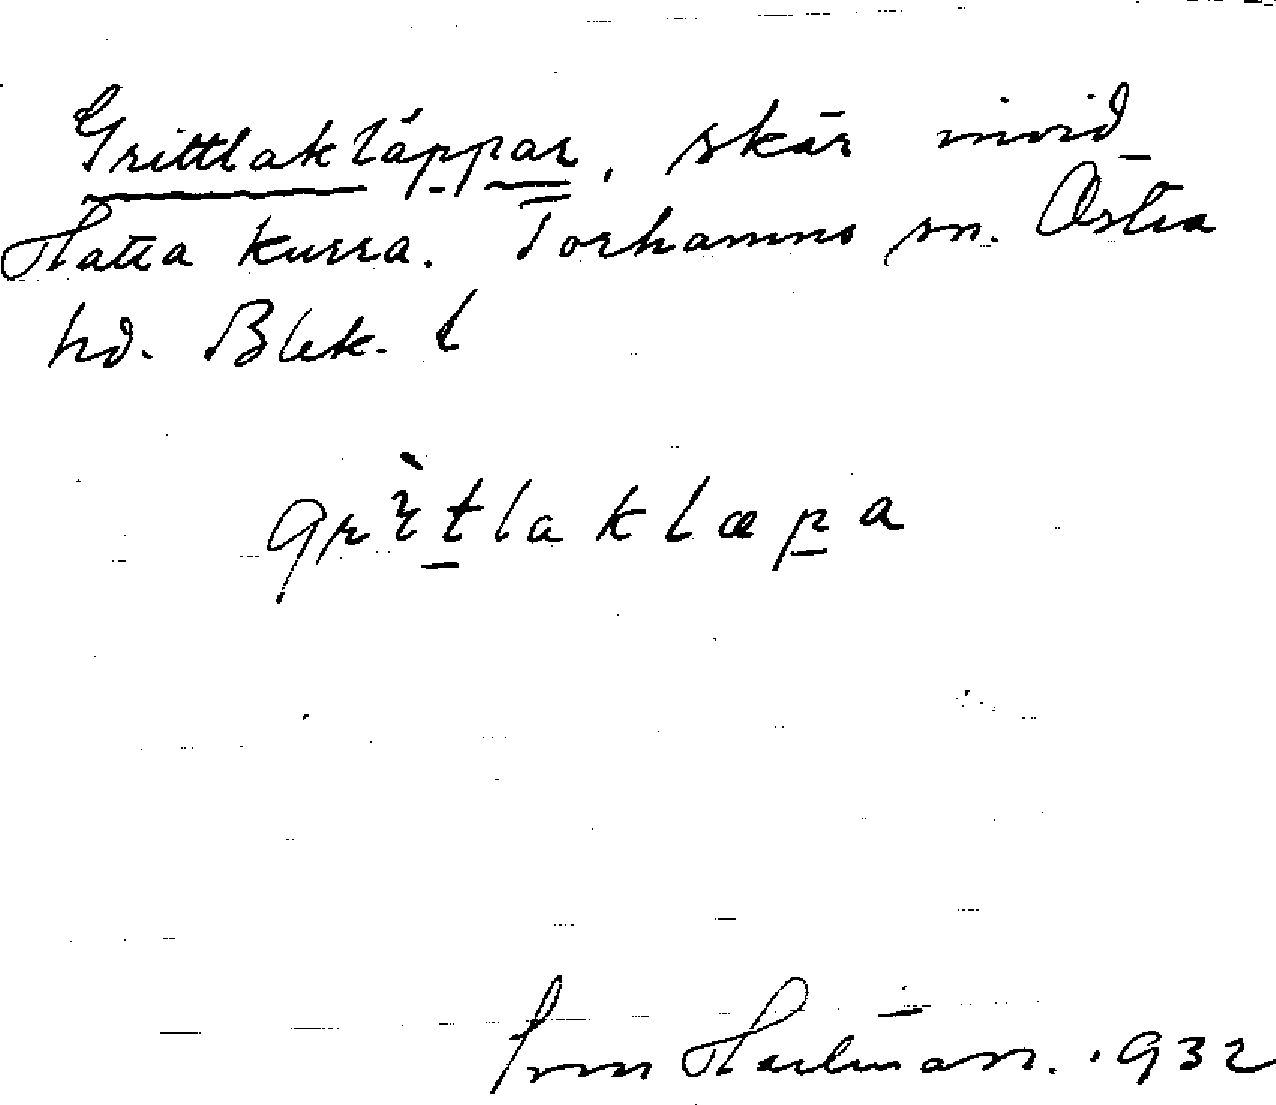 Grittlakläppar, skär invid
Hatta kurra. Torhamns sn. Östra
hd. Blek. l
grìtlaklæpa
Hartman. 1932